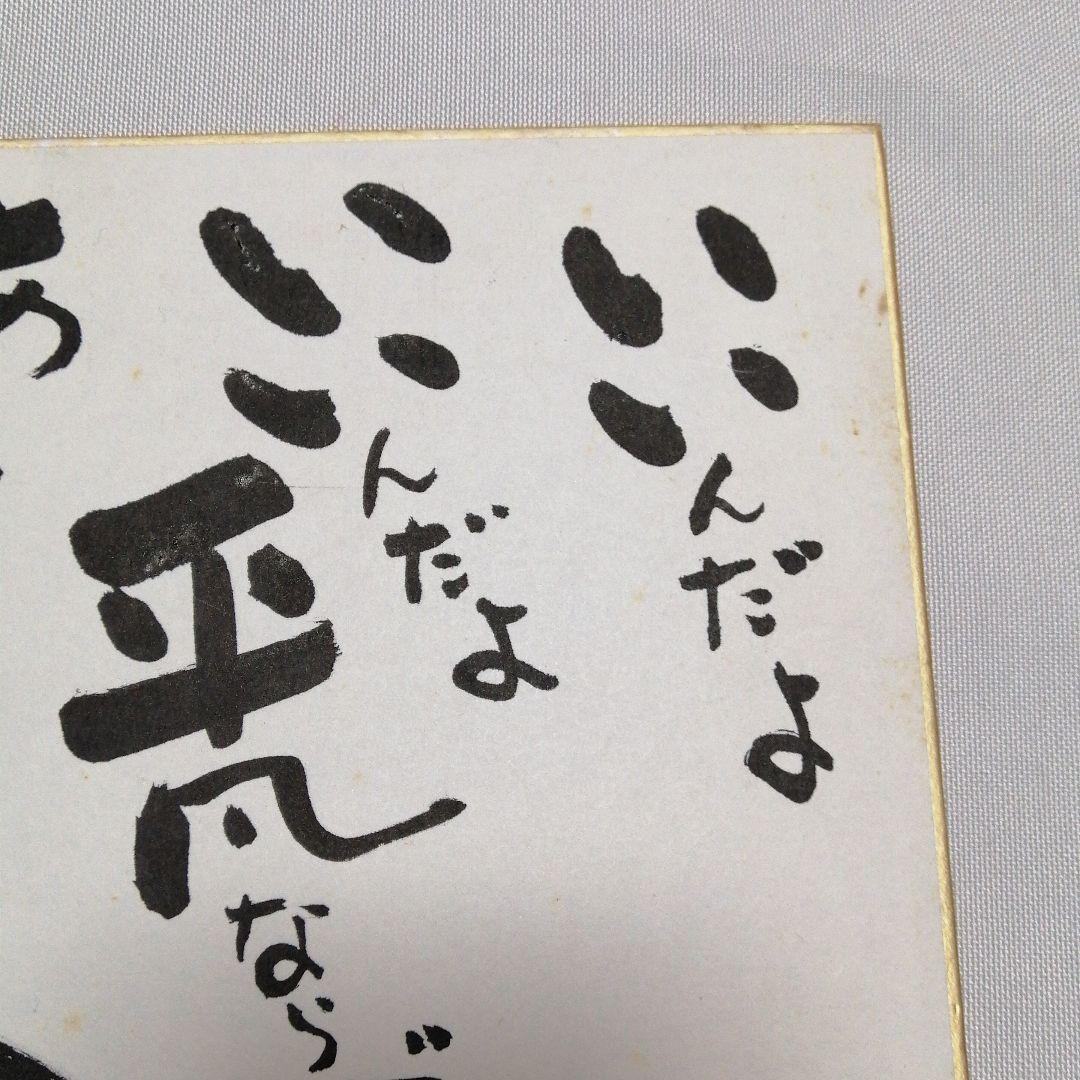 いいんだよ
いいんだよ
平凡なら